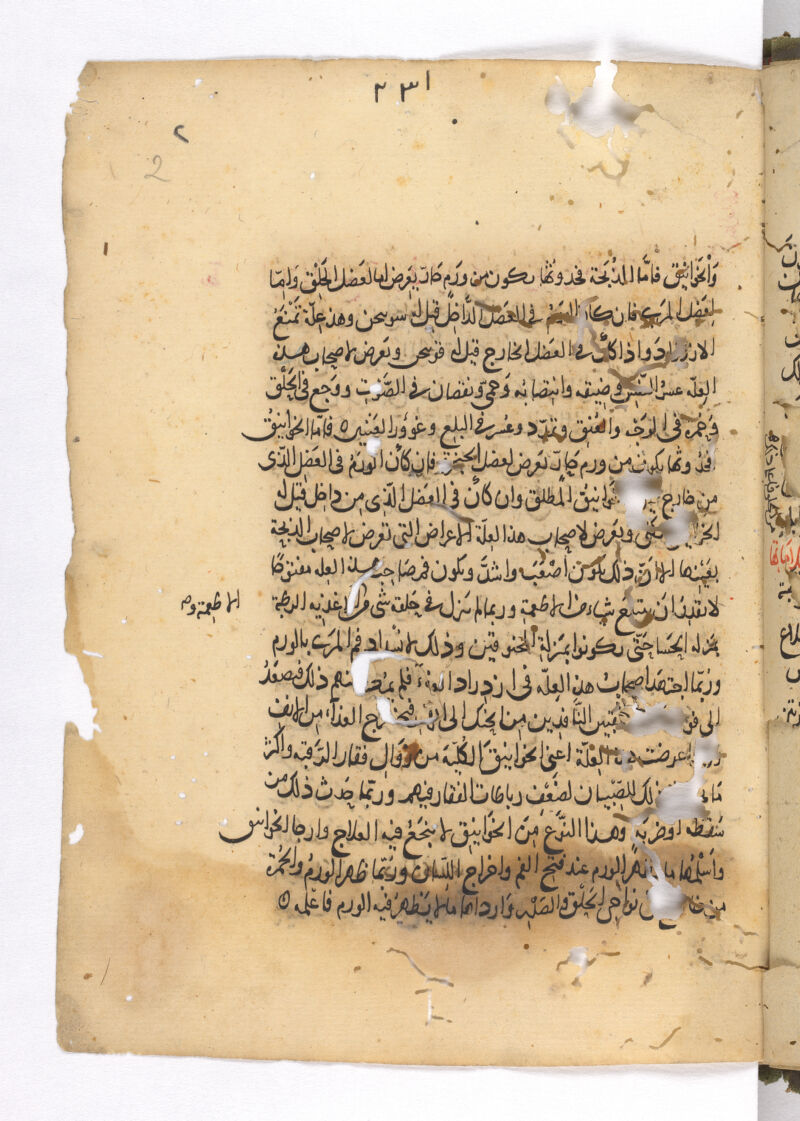 ٢٣١
٢
2
والخوانيق فاما الذبحة فحدوثها يكون من ورم حاد يعرض اما لعضل الحلق واما
لعضل المرى فان كان الورم فى العضل الداخل قيل له سونحى وهذه علة تمنع
الازدراد واذا كان فى العضل الخارج قيل له قونحى وتعرض لاصحاب هذه
العله عسر النفس وضيقه وانتصابه وحمى ونقصان فى الصوت ووجع فى الحلق
وحمرة فى الوجه والعنق وتمدد وعسر فى البلع وغوور العينين ٥ فاما الخوانيق
فحدوثها يكون من ورم حاد تعرض لعضل الحنجرة فان كان الورم فى العضل الذى
من خارج خوانيق المطلق وان كان فى العضل الذى من داخل قيل له
ويعرض لاصحاب هذه العلة الاعراض التى تعرض لاصحاب الذبحة
بعينها الا ان ذلك يكون اصعب واشد ويكون فم صاحب هذه العله مفتوحا
لا يقدر ان يبتلع شيا من الاطعمة وربما لم ينزل فى حلقه شى من الاغذيه الرطبة
الاطعمة وم
بمنزله الحسا حتى يكونوا بمنزلة المخنوقين وذلك لانسداد فم المرى بالورم
وربما اجتهد اصحاب هذه العله فى ازدراد الغذا فلم ذلك فيصعد
الى فوق الثقبين النافذين من الحنك الى الانف فيخرج الغذاء من الانف
عرضت هذه العلة اعنى الخوانيق الكلبية من زوال فقار الرقبه واكثر
ذلك للصبيان لضعف رباطات الفقار فيهم وربما حدث ذلك من
سقطه او ضربة وهذا النوع من الخوانيق لا ينجع فيه العلاج وارجا الخوانيق
واسلمها ما ظهر الورم عند فتح الفم واخراج اللسان وربما ظهر الورم والحمرة
من خارج نواحى الحلق والصدر وارداها ما لا يظهر فيه الورم فاعلمه ٥